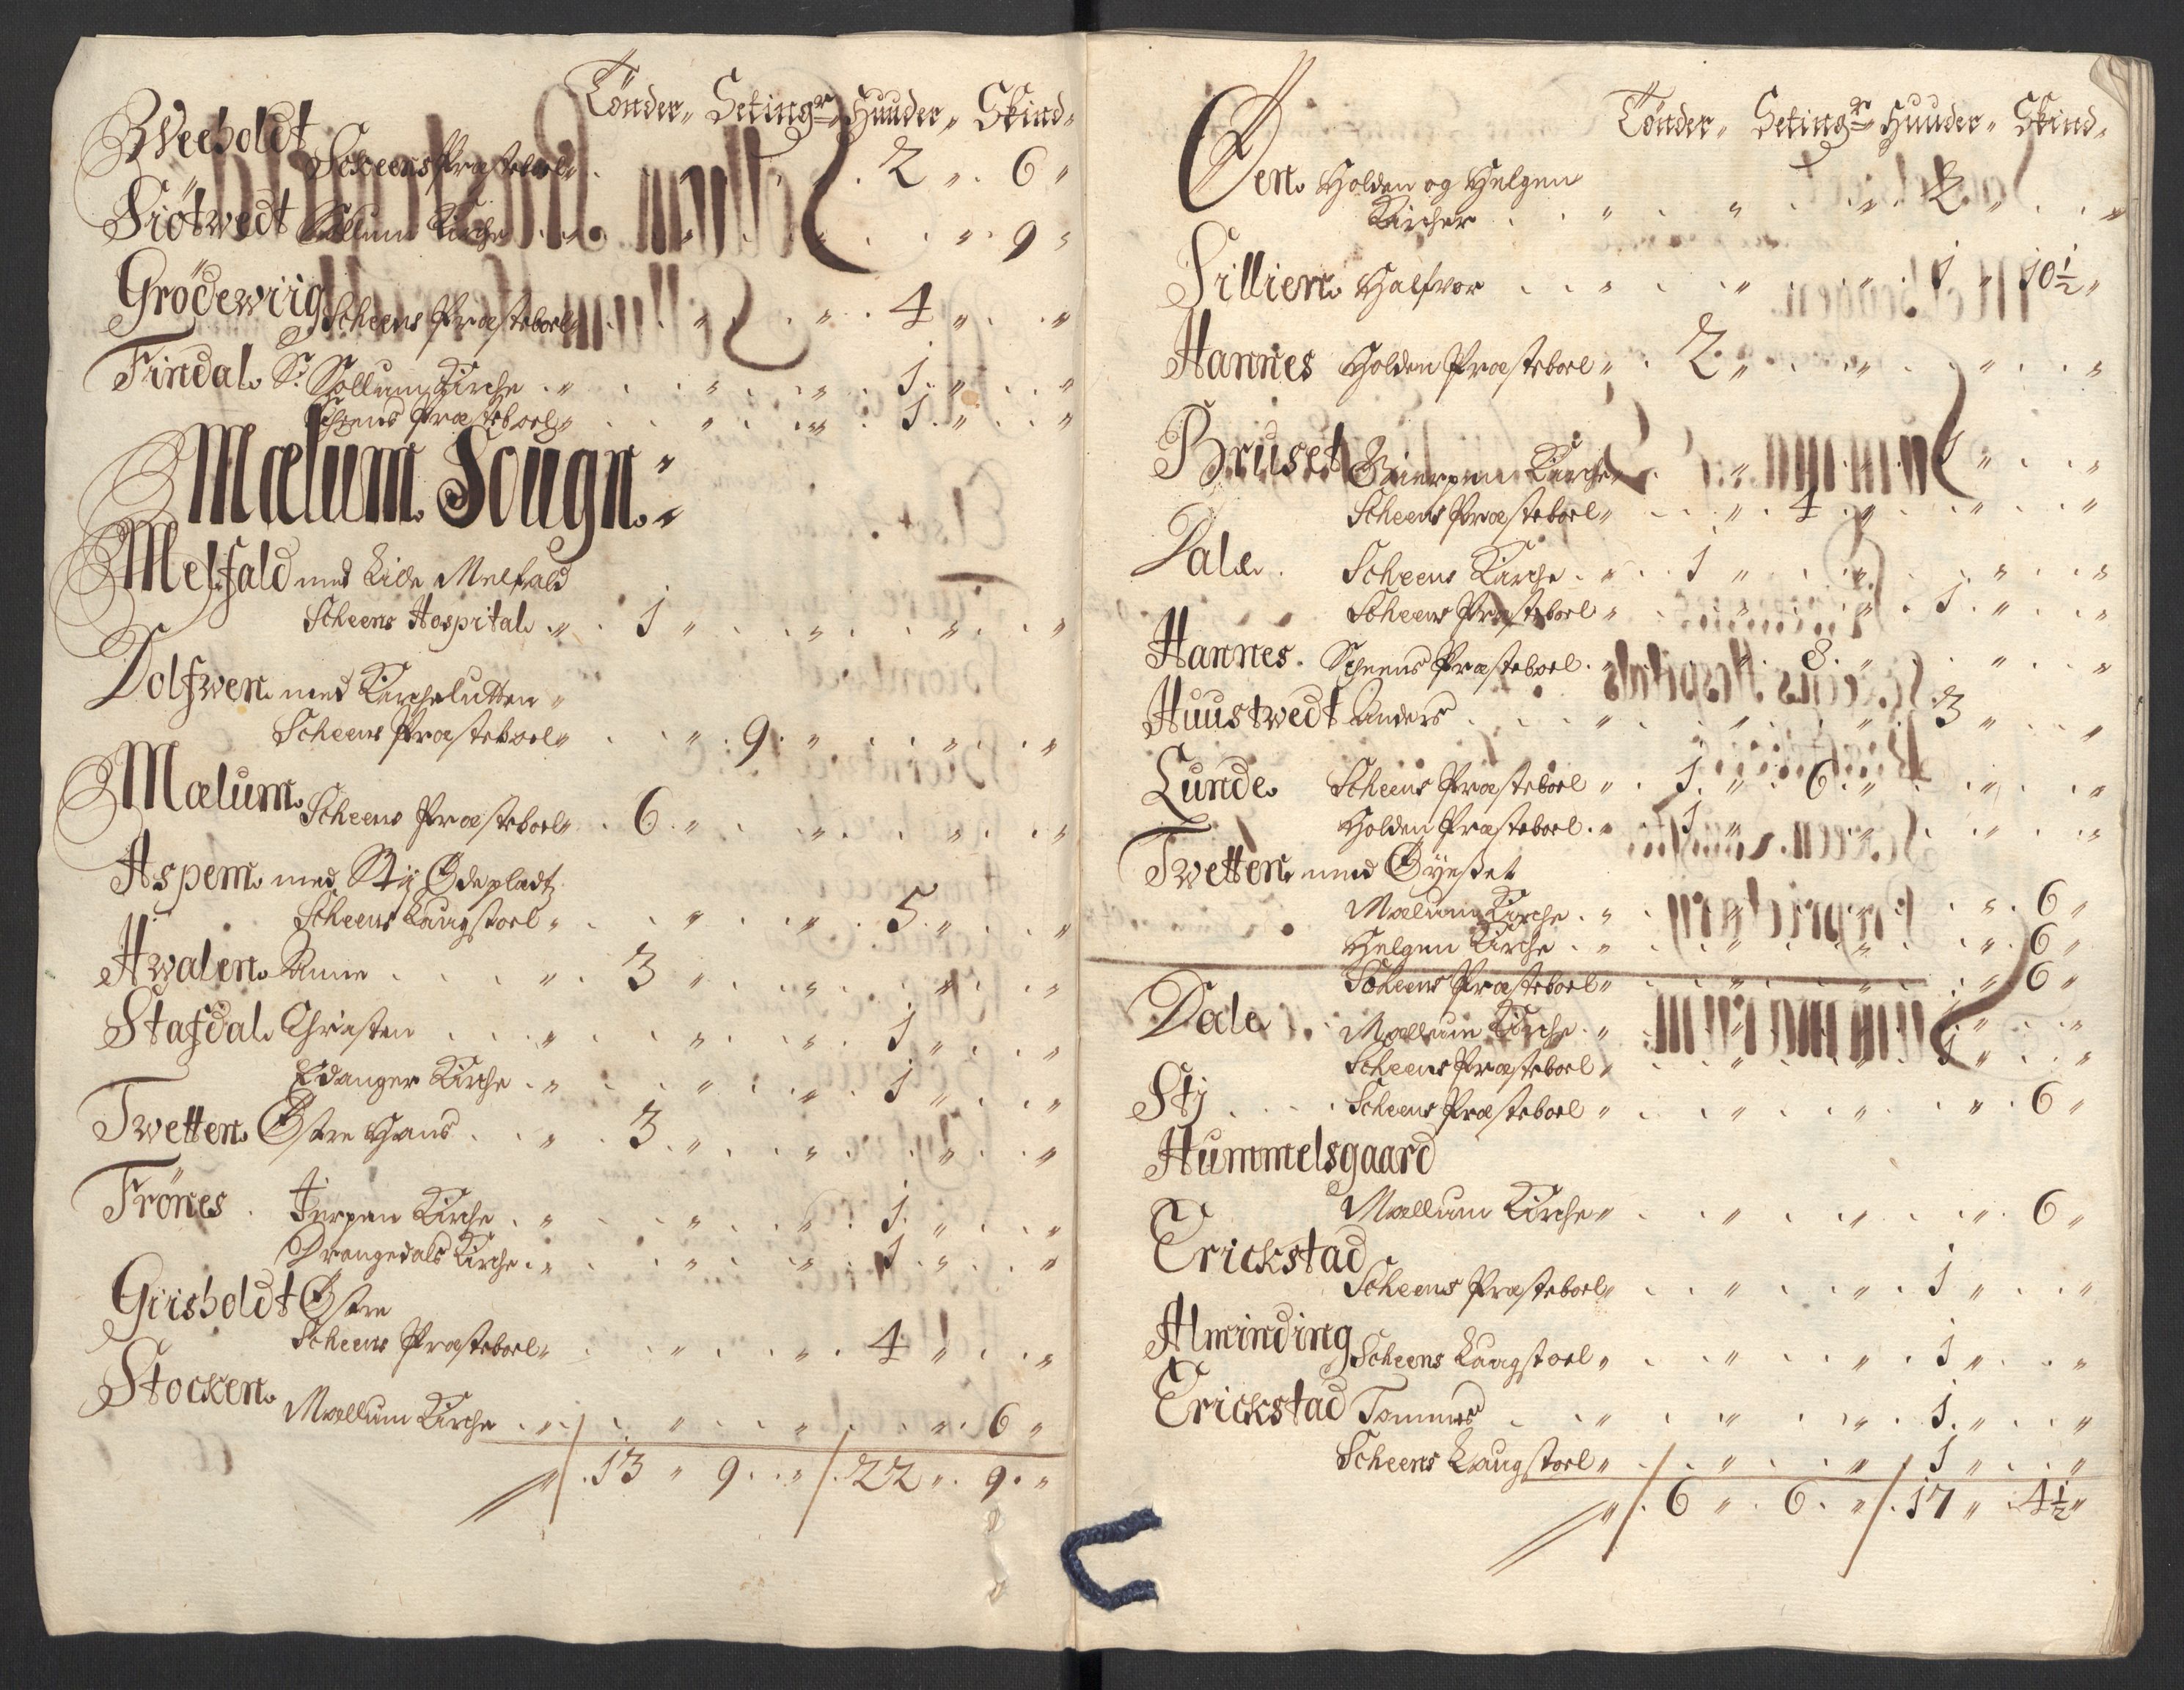 Tönder„ Setingr„ Huuder„ Skind„
Weeholdt Scheens Præsteboel„ . „ . . „ . 2 „ . 6 „
Fiötwedt Sollum Kirche . „ . . „ . . „ . . „ . 9 „
Grödewiig Scheens Præsteboel„ . . „ . . „ . 4 „ . . „
Findal. Sr. Sollum Kirche . „ . . „ . . „ . 1 . „ . . „
Scheens Præsteboel„ . . „ . . „ . 1 . „ . . „
Mælum Sougn:
Melfald med Lille Melfald
Scheens Hospital . „ . 1 „ . . „ . . „ . . „
Dolfwen. med Kirchelutten „
Scheens Præsteboel„ . . „ . 9 . „ . . „ . . „
Mælum. Scheens Præsteboel„ . 6 . „ . . „ . . „ . . „
Aspem. med Stij Ödepladtz
Scheens Laugstoel „ . . „ . . „ . 5 . „ . . „
Hwalen. Anne . . . „ . 3 „ . . „ . . „ . . „
Stafdal. Christen . . . „ . . „ . . „ . 1 „ . . „
Edanger Kirche . „ . . „ . . „ . 1 „ . . „
Twetten. Östre Hans . . „ . 3 . „ . . „ . . „ . . „
Frönes . Jerpen Kirche . „ . . „ . . „ . 1 . „ . . „
Drangedals Kirche . „ . . „ . . „ . 1 . „ . . „
Griisholdt Östre
Scheens Præsteboel„ . . „ . . „ . 4 „ . . „
Stocken. Mællum Kirche . „ . . „ . . „ . . „ . 6 „
„ /. 13 „ 9 . . „ /. 22 „ . 9 . „
Tönder„ Setingr„ Huuder„ Skind„
Oen. Holden og Helgen
Kircher . . „ . . „ . . „ . 2 „ . . „
Fillien. Halfvor . . „ . . „ . . „ . 1 „ 10½ „
Hannes Holden Præsteboel „ . 2 „ . . „ . . „ . . „
Bruset Gierpen Kirche „ . . „ . . „ . 1 „ . . „
Scheens Præsteboel „ . . „ . 4 . „ . . „ . . „
Dale. . Scheens Kirche . „ . 1 „ . . „ . . „ . . „
Scheens Præsteboel „ . . „ . . „ . 1 . „ . . „
Hannes . Scheens Præsteboel . „ . . „ . 8 . „ . . „ . . „
Huustwedt Anders . . . „ . . „ . . „ . 3 „ . . „
Lunde. Scheens Præsteboel „ . 1 . „ . 6 . „ . . „ . . „
Holden Præsteboel . „ . 1 „ . . „ . . „ . . „
Twetten. med Öÿesset
Mælum Kirche . „ . . „ . . „ . . „ . 6 „
Helgen Kirche . „ . . „ . . „ . . „ . 6 „
Scheens Præsteboel „ . . „ . . „ . . „ 6 „
Dale . . Mællum Kirche . „ . . „ . . „ . 1 . „ . . „
Scheens Præsteboel „ . . „ . . „ . 1 „ . . „
Stj . . . . Scheens Præsteboel „ . . „ . . „ . . „ . 6 „
Hummelsgaard
Mællum Kirche „ . . „ . . „ . . „ . 6 „
Erickstad
Scheens Præsteboel„ . . „ . . „ . 1 „ . . „
Alminding Scheens Laugstoel „ . . „ . . „ . 1 „ . . „
Erickstad Tommes . . „ . . „ . . „ . 1 . „ . . „
Scheens Laugstoel „ . . „ . . „ . 1 „ . . „
„ /. 6 „ . 6 . „ /. 17 „ . 4½ „